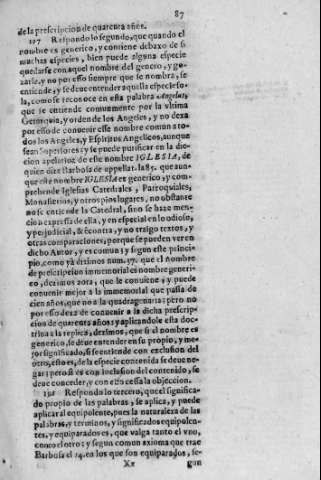 87
de la prescripcion de quarenta años.
127 Respondo lo segundo, que quando el
nombre es generico, y contiene debaxo de si
muchas especies, bien puede alguna especie
quedarse con aquel nombre del genero, y go-
zarle, y no por esso siempre que se nombra, se
entiende, y se deue entender aquella especie so-
la, como se reconoce en esta palabra Angelus,
que se entiende comunmente por la vltima
Gerarquia, y orden de los Angeles, y no dexa
por esso de conuenir esse nombre comun a to-
dos los Angeles, y Espiritus Angelicos, aunque
sean Superiores: y se puede purificar en la dic-
cion apelatiua de este nombre IGLESIA, de
quien dize Barbosa de appellat. la 85. que aun-
que este nombre IGLESIA es generico, y com-
prehende Iglesias Catedrales, Parroquiales,
Monasterios, y otros pios lugares, no obstante
no se entiende la Catedral, sino se haze men-
cion expressa de ella, y en especial en lo odioso,
y perjudicial, & è contra, y no traigo textos, y
otras comparaciones, porque se pueden ver en
dicho Autor, y es comun: y segun este princi-
pio, como yà diximos num. 37. que el nombre
de prescripcion immemorial es nombre generi-
co, dezimos aora, que le conuiene, y puede
conuenir mejor à la immemorial que passa de
cien años, que no a la quadragenaria: pero no
por esso dexa de conuenir a la dicha prescrip-
cion de quarenta años: y aplicandole esta doc-
trina a la replica, dezimos, que si el nombre es
generico, se deue entender en su propio, y me-
jor significado, si se entiende con exclusion del
otro, esto es, de la especie contenida se deue ne-
gar; pero si es con inclusion del contenido, se
deue conceder, y con esto cessa la objeccion.
Respondo lo tercero, que el significa-
do propio de las palabras, se aplica, y puede
aplicar al equipolente, pues la naturaleza de las
palabras, y terminos, y significados equipolen-
tes, y equiparados es, que valga tanto el vno,
como el otro: y segun comun axioma que trae
Barbosa el 14. en los que son equiparados, se-
Xx gun